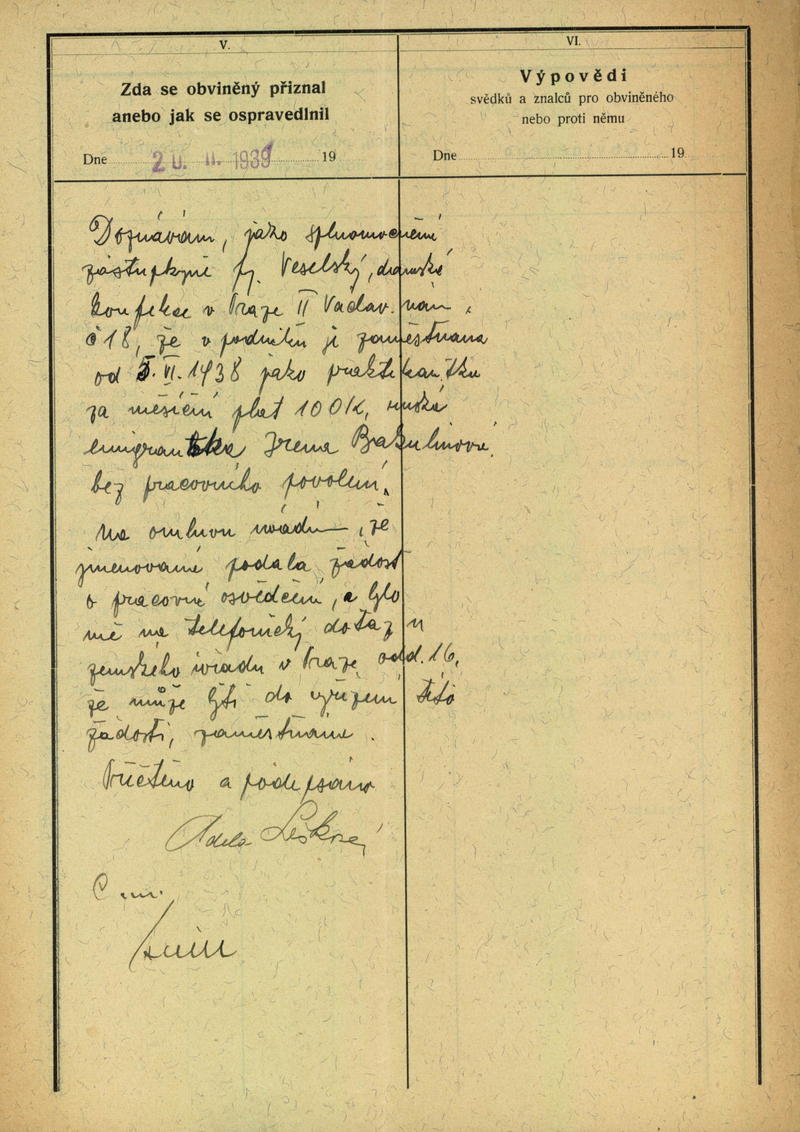 V.
Zda se obviněný přiznal
anebo jak se ospravedlnil
Dne 20. II. 1939 19
VI.
Výpovědi
svědků a znalců pro obviněného
nebo proti němu
Dne 19
Doznávám, jako splnomocnění
zástupkyně fy. Veselský, dámské
konfekce v Praze II Václav. nám.
č 18, že v podniku je zaměstnána
od 5. VI. 1938 jako praktikantka
za měsíční plat 100 K, ruská
emigrantka Irena Brakulinová
bez pracovního povolení.
Na omluvu uvádím, že
jmenovaná podala žádost
o pracovní osvědčení, a bylo
mě na telefonický dotaz u
zemského úřadu v Praze odd. 16,
že může býti do vyřízení této
žádosti, zaměstnána.
Přečteno a podepsáno
Adela